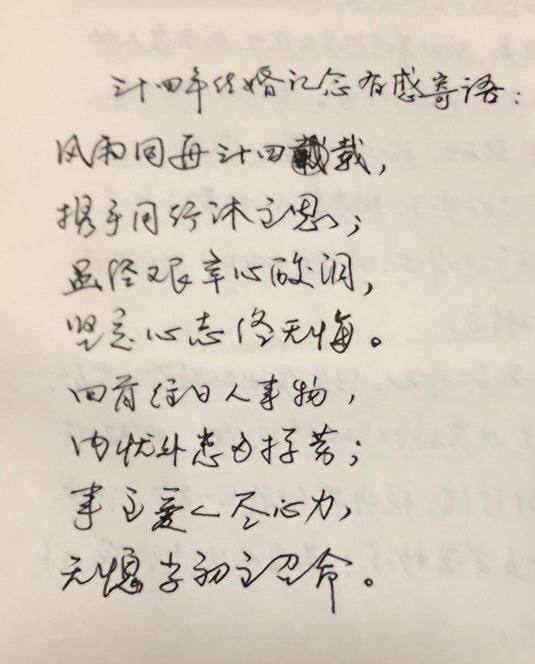 卅四年结婚记念有感寄语：
风雨同舟卅四载，
携手同行沐主恩；
虽经艰辛心酸泪，
坚定心志终无悔。
回首往日人事物，
内忧外患操劳；
事主爱人尽心力，
无愧当初主召命。